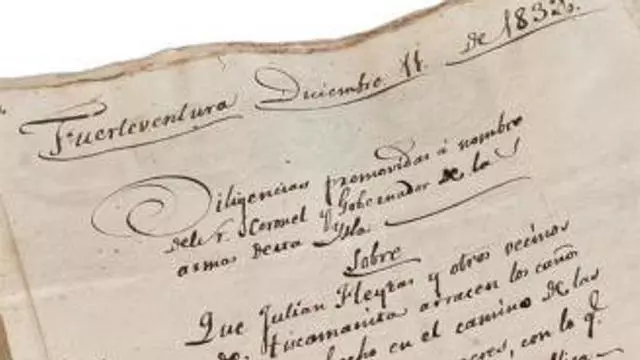 Fuerteventura Diciembre 11. de 1832.
Diligencias promovidas á nombre
del Sr. Coronel Gobernador de las
armas de esta Ysla
Sobre
Que Julián Fleytas y otros vecinos
de Tiscamanita arracen los caños
hecho en el camino de las
con lo q.